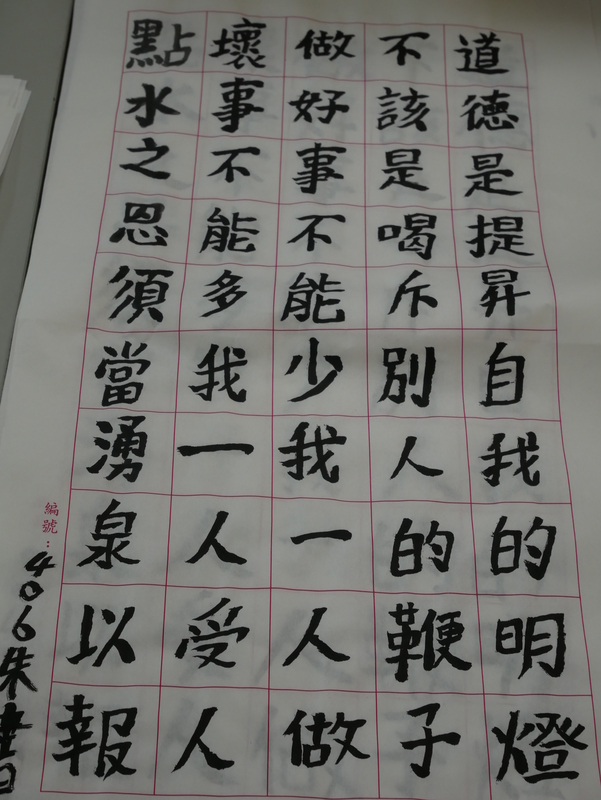 道德是提昇自我的明燈
不該是喝斥別人的鞭子
做好事不能少我一人做
壞事不能多我一人受人
點水之恩須當湧泉以報
編號:406朱